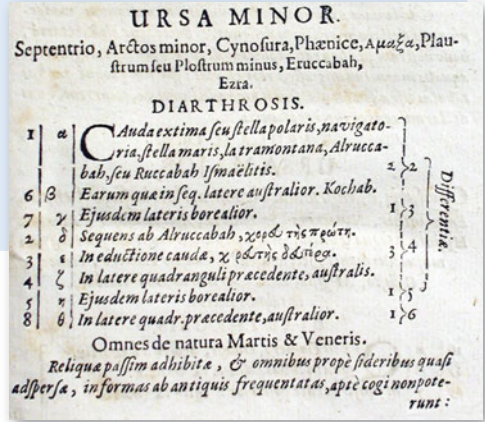 URSA MINOR.
Septentrio, Arctos minor, Cynosura, Phænice, Αμαξα, Plau-
strum seu Plostrum minus, Eruccabah,
Ezra.
DIARTHROSIS.
1 α CAuda extima seu stella polaris, navigato-
ria, stella maris, la tramontana, Alrucca-
bah, seu Ruccabah Ismaëlitis. 2 2
6 β Earum quæ in seq. latere australior. Kochab.
7 γ Ejusdem lateris borealior. 1 3
2 δ Sequens ab Alruccabah, πρώτη.
3 ε In eductione caudæ, 3 4
4 ζ In latere quadranguli præcedente, australis.
5 η Ejusdem lateris borealior. 1 5
8 θ In latere quadr. præcedente, australior. 1 6
Differentiæ.
Omnes de natura Martis & Veneris.
Reliquæ passim adhibitæ, & omnibus propè sideribus quasi
adspersæ, informas ab antiquis frequentatas, aptè cogi non pote-
runt: